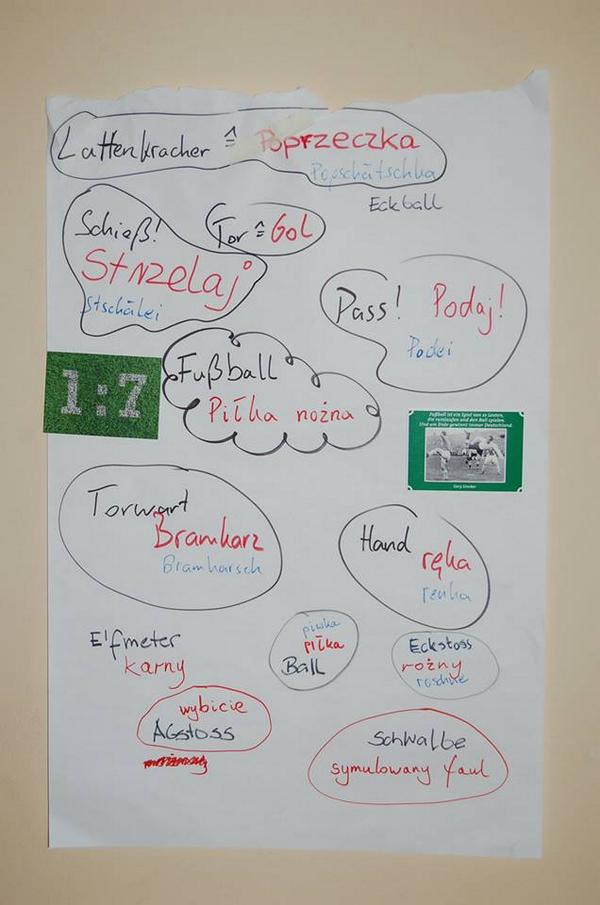 Lattenkracher ≙ Poprzeczka
Popschätschka
Eckball
Schieß!
Strzelaj
Stschälei
Tor ≙ Gol
Pass! Podaj!
Podei
Fußball
Piłka nożna
1:7
Fußball ist ein Spiel von 22 Leuten,
die rumlaufen und den Ball spielen.
Und am Ende gewinnt immer Deutschland.
Gary Lineker
Torwart
Bramkarz
Bramkarsch
Hand
ręka
renka
Elfmeter
karny
piwka
piłka
Ball
Eckstoss
rożny
roschne
wybicie
Abstoss
Schwalbe
symulowany faul